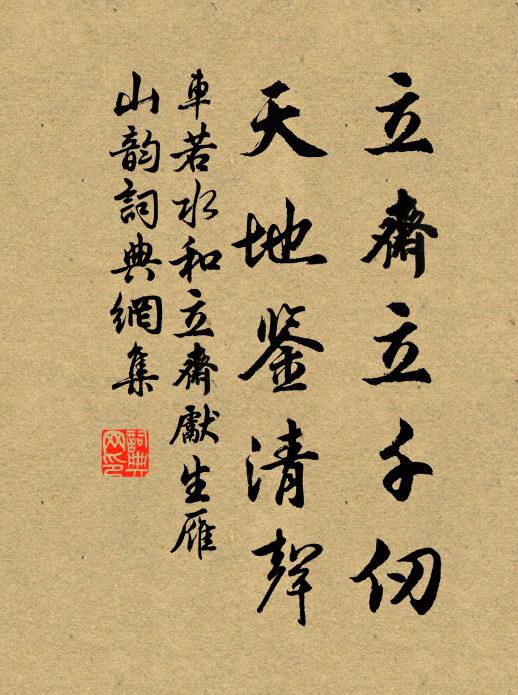 立齋立千仞
天地鉴清聲
車若水和立齋獻生雁
山韵詞典網集
詞典网印